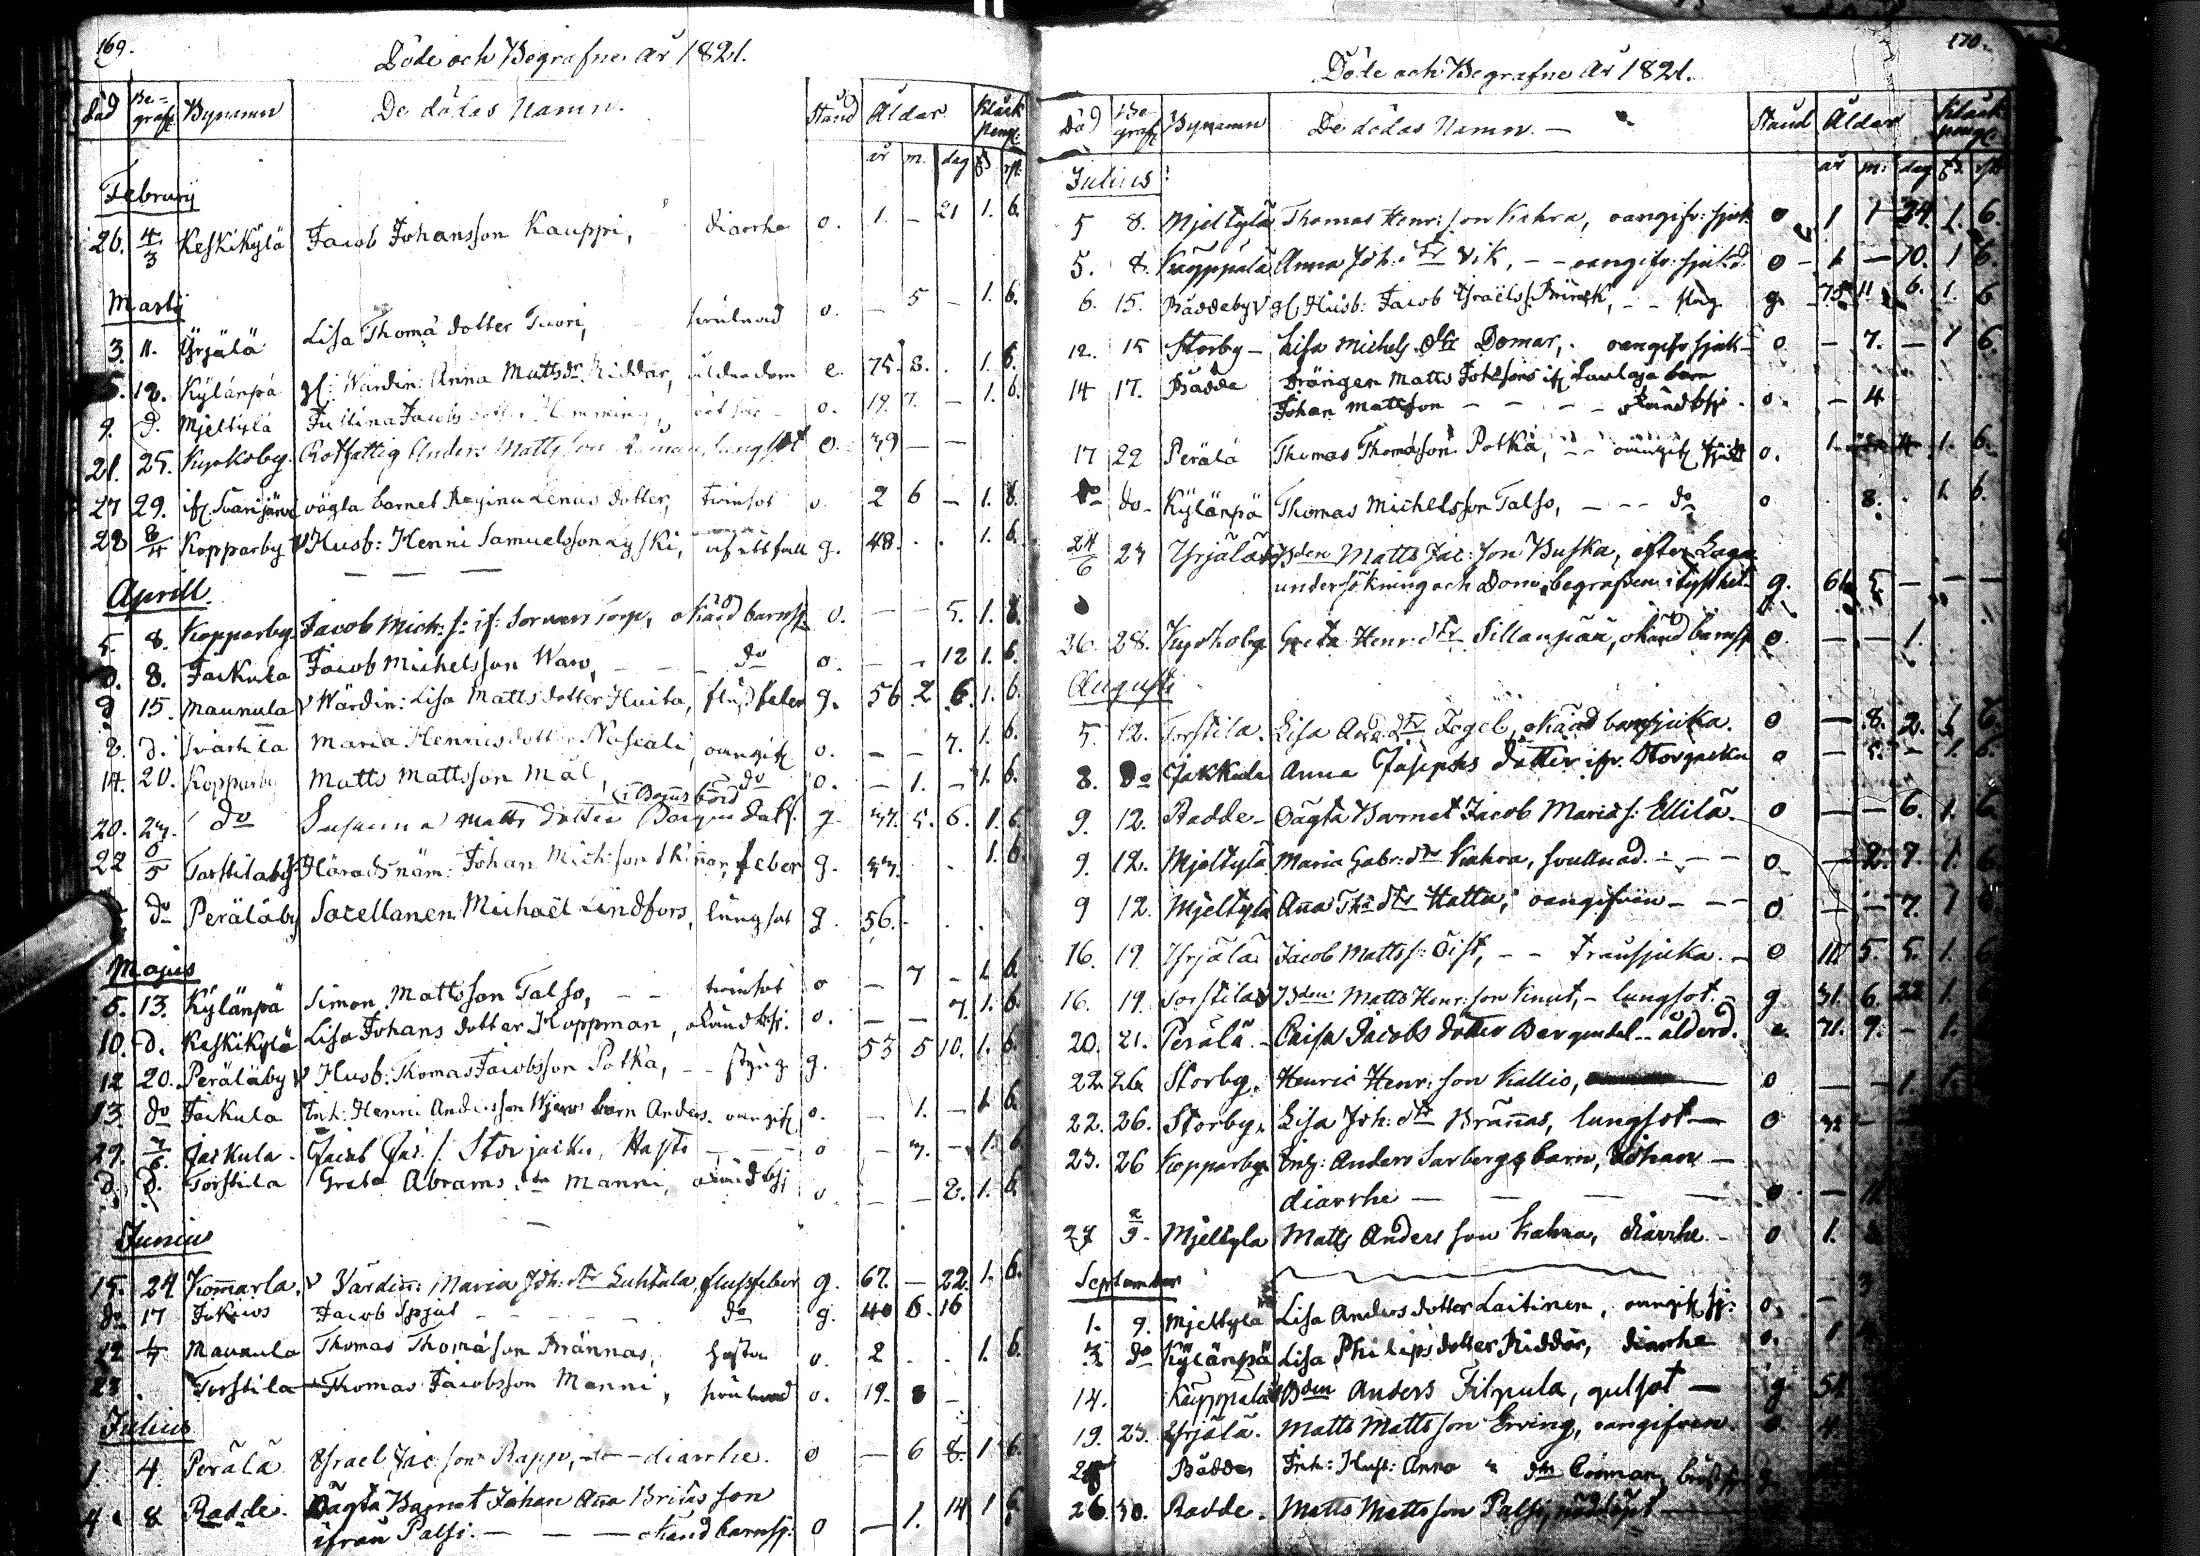 169.
Döde och Begrafne År 1821.
Död Be-graf: Bynamn De dödas Namn. Stånd Ålder Klåck peng:
år m. dag
February
26. 4/3 Keskikylä Jacob Johansson Kauppi, diarrhe o. 1. – 21 1. 6.
Marti
3. 11. Yrjälä Lisa Thomä dotter Tuori, o. – 5 – 1. 6.
5. 18. Kylänpä Wärdin: Anna Mattsdr Riddar, ålderdom e. 75. 8. . 1. 6.
9. d. Mjeltylä Justina Jacobs dotter Hemming, o. 19. 7. – 1. 6.
21. 25. Kyrkoby. Rotfattig Anders Mattsson lungsot o. 39 – –
27 29. oägta barnet Regina Lenas dotter, twinsot o. 2 6 – 1. 8.
28 8/4 Kopparby Husb: Henric Samuelsson Lyski, g. 48. . . 1. 6.
Aprill
5. 8. Kopparby Jacob Mich: s: okänd barnsj. o. – – 5. 1. 8.
d. 8. Jackula Jacob Michelsson Waro, do o. – – 12 1. 6.
d 15. Maunula Wärdin: Lisa Matts dotter Huita, flussfeber g. 56 2 6 1. 6.
8. d. Maria Henrics dotter oangif: o. – – 7. 1. 6.
14. 20. Kopparby Matts Mattsson Mål, do o. – 1. – 1. 6.
20. 27. do Susanna Matts dotter g. 37. 5. 6. 1. 6
22 6/5 Torstilaby Häradsnäm: Johan Mich:son Skinnar, feber g. 1. 6.
do Peräläby Sacellanen Michaël Lindfors, lungsot g. 56. . . .
Majus
5. 13. Kylänpä Simon Mattsson Talso, – – twinsot o – 7 – 1. 6.
10. d. Keskikylä Lisa Johans dotter Koppman, okänd bsj. o. – – 7. 1. 6.
12 20. Peräläby Husb: Thomas Jacobsson Potka, – – styng g. 53 5 10. 1. 6.
13. do Jackula Inh: Henric Andersson barn Anders. oangif: o. – 1. – 1. 6.
29. 7/6. Jackula. Jacob Jac: s. Storjacku, Hosta – o – 7. – 1. 6
d. d. Torstila Greta Abrams dtr Manni, okänd bsj o. – – 8. 1. 6.
Junius
15. 24 Kom̄arla. Värdin̄: Maria Joh: dtr Luhtala, flussfeber g. 67. – 22. 1. 6.
do 17 Jacob Spjut – – do g. 40 6. 16
12 1/7 Maunula Thomas Thomasson Brännas, hosta o. 2 . . 1. 6.
23. Torstila Thomas Jacobsson Manni, o. 19. 8 –
Julius
1. 4. Perälä Israel Jac: son Rapp, – diarrhe. o – 6 8. 1. 6.
4. 8 Radde. Oägta Barnet Johan Ana Britas son
ifrån Palsi. – – – okänd barnsj. o – 1. 14 1 6.
170.
Döde och Begrafne År 1821.
Död Be-graf: Bynamn De dödas Namn. – Stånd Ålder Klåck peng:
år m: dag
Julius:
5 8. Mjeltylä Thomas Henr: son Kahra, oangifv: sjuk. o 1 1 24. 1. 6.
5. 8. Käyppälä Anna Joh: dtr Vik, – – oangifv: sjukd. o – 1 – 10. 1 6.
6. 15. Räddeby Husb: Jacob Israels s. – – styng g. 75 11 6. 1. 6
12. 15 Storby – Lisa Michels dtr Domar, oangifv sjuk – o – 7. – 1 6.
14 17. Rädde Drängen Matts barn
Johan Mattsson – – – – okänd bsj. o. – 4
17 22 Perälä Thomas Thomasson Potka, – – oangif: sjuk o. 1. 4. 1. 6.
do do Kylänpä Thomas Michelsson Talso, – – – do o . 8. . 1. 6.
24/6 23 Yrjälä Bden Matts Jac: son Buska, efter Laga
undersökning och Dom, begrafven i tysthet g. 61 5 – – –
26. 28. Kyrkoby Greta Henr: dtr Sillanpää, okänd barnsj. o. – – 1.
Augusti
5. 12. Torstila. Lisa And: dtr Fogel, okänd barnsjuka. o – 8. 2. 1. 6.
8. do Jakkula Anna Josephs dotter ifr. Storjacku o – – 1. 6.
9. 12. Radde – Oägta Barnet Jacob Marias s: Ellilä. o – – 6. 1. 6
9. 12. Mjeltylä Maria Gabr: dtr Kahra, svullnad. – – – o – 2. 9. 1. 6
9 12. Mjeltylä Ana Tho: dtr Hattu, oangifven – – – o – – 7. 1 6
16. 19. Yrjälä Jacob Matts s: Öist, – – transjuka. – o 11 5. 5. 1. 6
16. 19. Torstila Bden Matts Henr: son Knut, – lungsot. – g. 31. 6. 22 1. 6
20. 21. Perälä. – Caisa Jacobs dotter Bergendal – ålderd. e. 71. 9. – 1.
22. 26 Storby. Henric Henr: son Kallio, o – – 1. 1.
22. 26. Storby. Lisa Joh: dtr Brännas, lungsot – o –
23. 26 Kopparby Inh: Anders Sarbergs barn, Johan –
diarrhe – – – – o. – 11
27 2/9. Mjeltyla Matts Anders son Kahra, diarrhe. – o 1.
September
1. 9. Mjeltyla Lisa Anders dotter Laitinen, oangif: sj: o. – 3
3. do Kylänpä Lisa Philips dotter Riddar, diarrhe o. 1
14. Käyppälä Bden Anders Filpula, gulsot – g 51
19. 23. Yrjälä. Matts Mattsson Erving, oangifven. o. 4.
Rädde Inh: Hust: Anna dtr
26 30. Radde. Matts Mattsson Palsi,